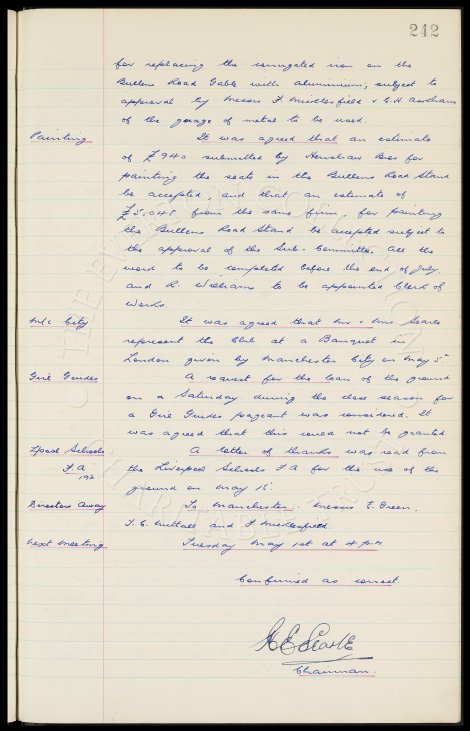 242
for replacing the corrugated iron on the
Bullens Road Gable with aluminium, subject to
approval by Messrs F. Micklesfield & C.H. Askham
of the guage of metal to be used.
Painting It was agreed that an estimate
of £940 submitted by Henshaw Bros for
painting the seats in the Bullens Road Stand
be accepted, and that an estimate of
from the same firm, for painting
the Bullens Road Stand be accepted subject to
the approval of the Sub-Committee. All the
work to be completed before the end of July,
and R. Williams to be appointed Clerk of
Works.
M/c City It was agreed that Mr & Mrs Searle
represent the Club at a Banquet in
London given by Manchester City on May 5th
Girl Guides A request for the loan of the ground
on a Saturday during the close season for
a Girl Guides pageant was considered. It
was agreed that this could not be granted
Lpool Schools A letter of thanks was read from
F.A. the Liverpool Schools F.A. for the use of the
ground on May
Directors Away To Manchester: Messrs E. Green,
T.C. Nuttall and F. Micklesfield.
Next Meeting Tuesday May 1st at 4 p.m.
Confirmed as correct
Chairman.
THE EVERTON COLLECTION
CHARITABLE TRUST